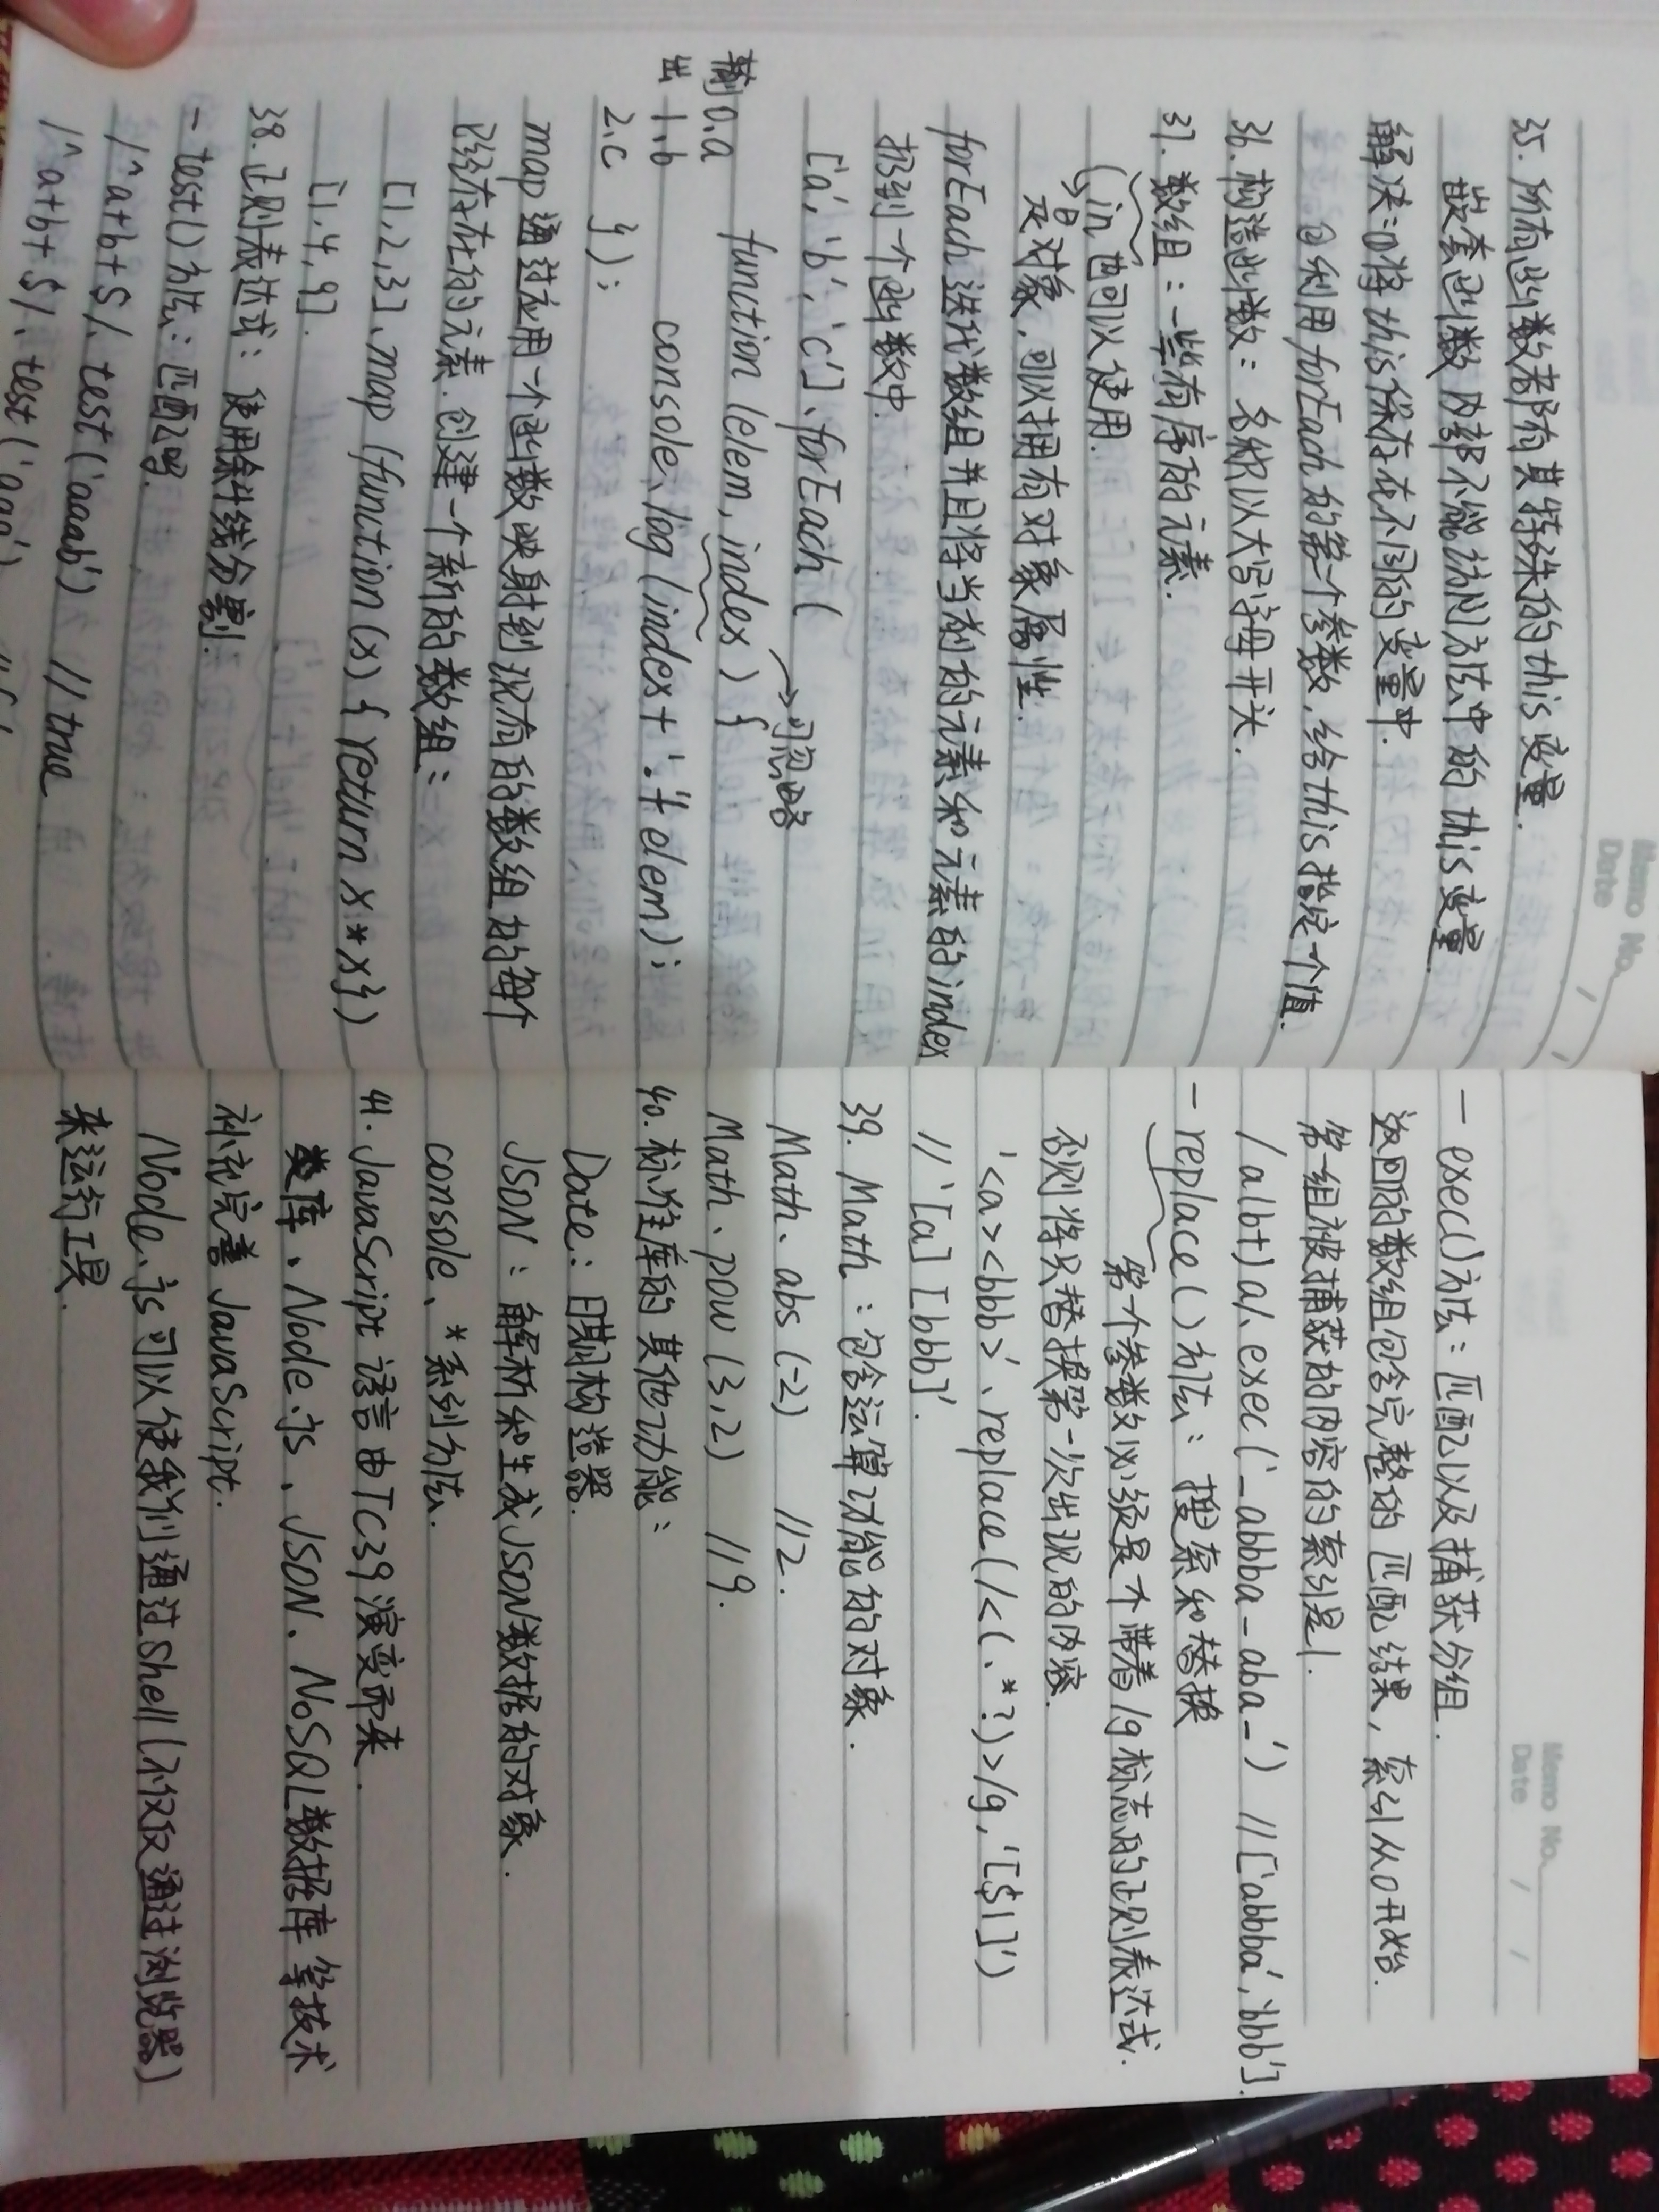 Memo No.
Date / /
35. 所有函数都有其特殊的this变量.
嵌套函数内部不能访问方法中的this变量
解决:①将this保存在不同的变量中.
②利用forEach的第二个参数,给this指定一个值.
36. 构造函数:名称以大写字母开头.
37. 数组:一些有序的元素.
(in也可以使用.
↳是对象,可以拥有对象属性.
forEach迭代数组并且将当前的元素和元素的index
扔到一个函数中.
['a','b','c'].forEach(
→可忽略
function(elem,index){
console.log(index+'.'+elem);
});
输出
0.a
1.b
2.c
map通过应用一个函数映射到现有的数组的每个
已经存在的元素.创建一个新的数组:
[1,2,3].map(function(x){return x*x})
[1,4,9].
38. 正则表达式:使用斜线分割.
- test()方法:匹配吗.
/^a+b+$/.test('aaab') //true
/^a+b+$/.test('aaa')
Memo No.
Date / /
- exec()方法:匹配以及捕获分组.
返回的数组包含完整的匹配结果,索引从0开始.
第一组被捕获的内容的索引是1.
/a(b+)a/.exec('_abbba_aba_') //['abbba','bbb'].
- replace()方法:搜索和替换
第一个参数必须是个带着/g标志的正则表达式.
否则将只替换第一次出现的内容.
'<a><bbb>'.replace(/<(.*?)>/g,'[$1]')
//'[a][bbb]'.
39. Math:包含运算功能的对象.
Math.abs(-2) //2.
Math.pow(3,2) //9.
40. 标准库的其他功能:
Date:日期构造器.
JSON:解析和生成JSON数据的对象.
console.*系列方法.
41. JavaScript语言由TC39演变而来.
类库、Node.js、JSON、NoSQL数据库等技术
补充完善JavaScript.
Node.js可以使我们通过Shell(不仅仅通过浏览器)
来运行工具.